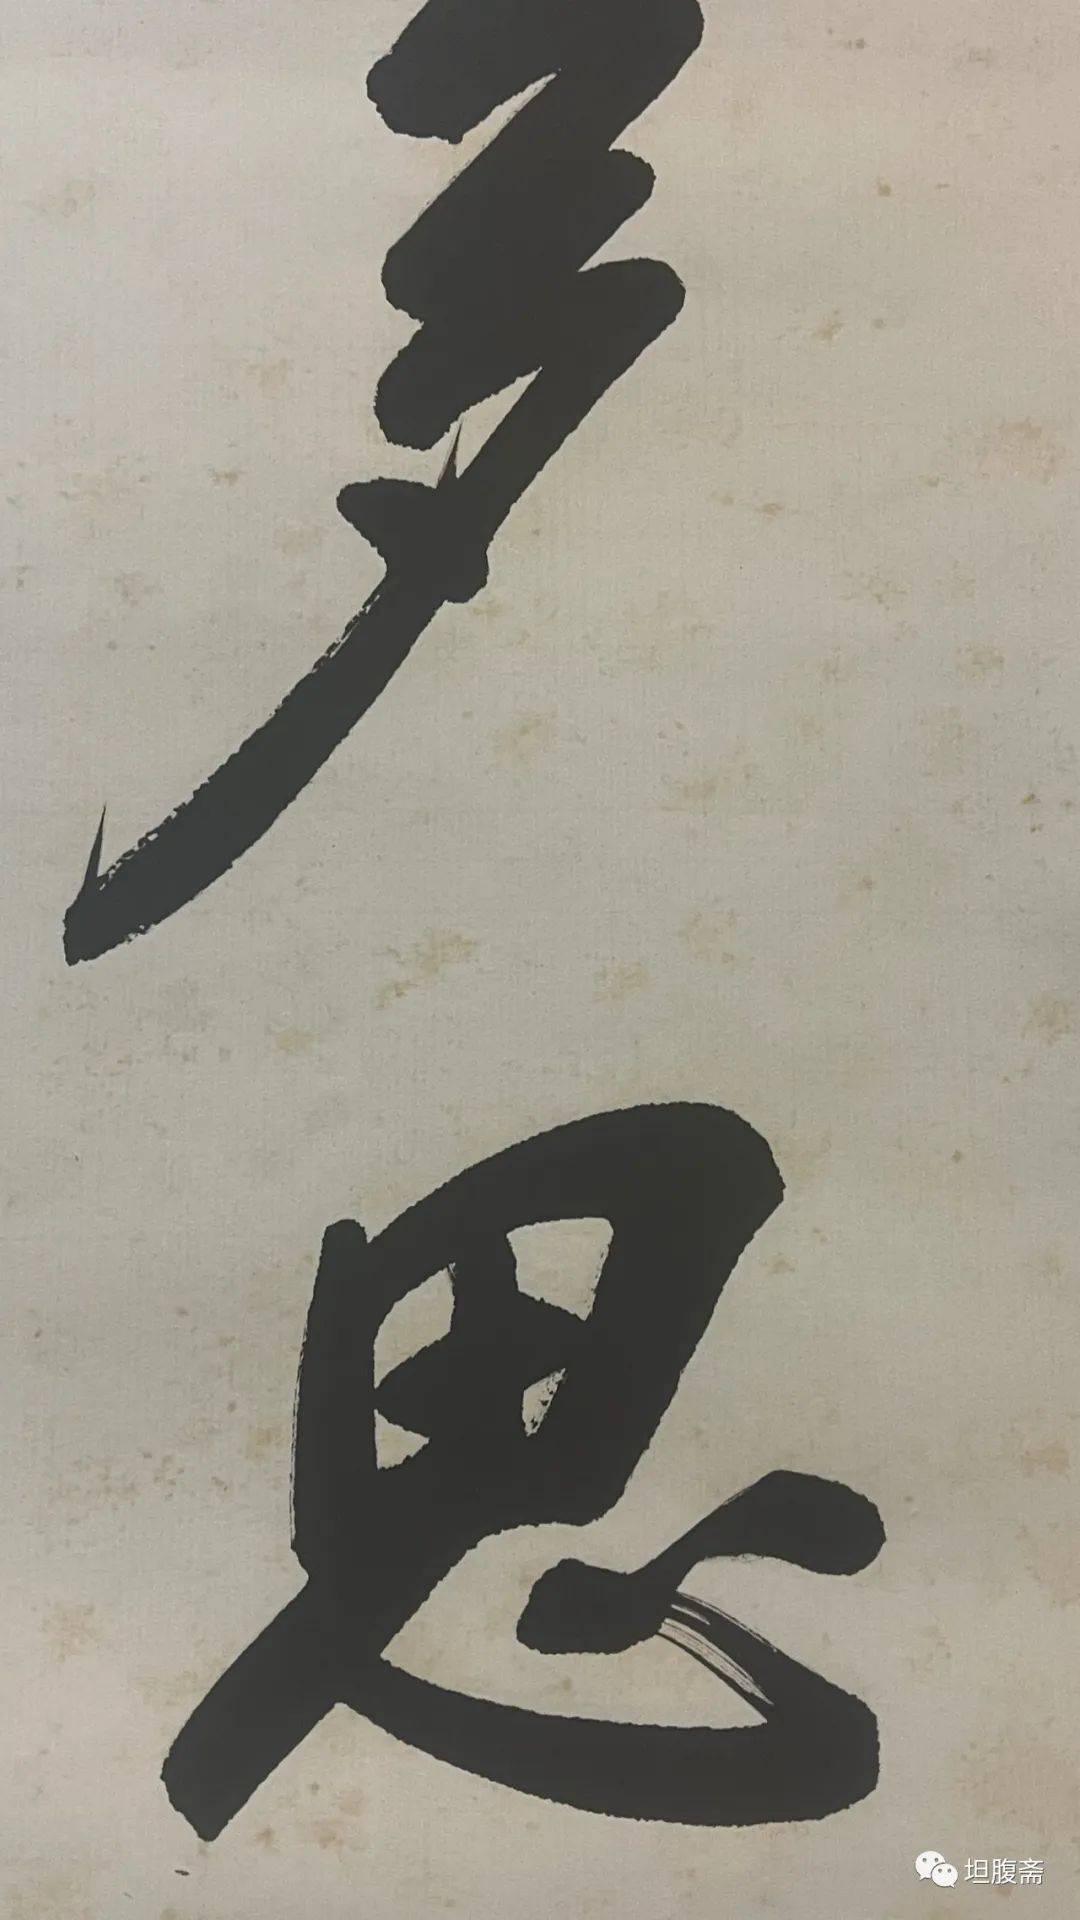 多
思
坦腹斋